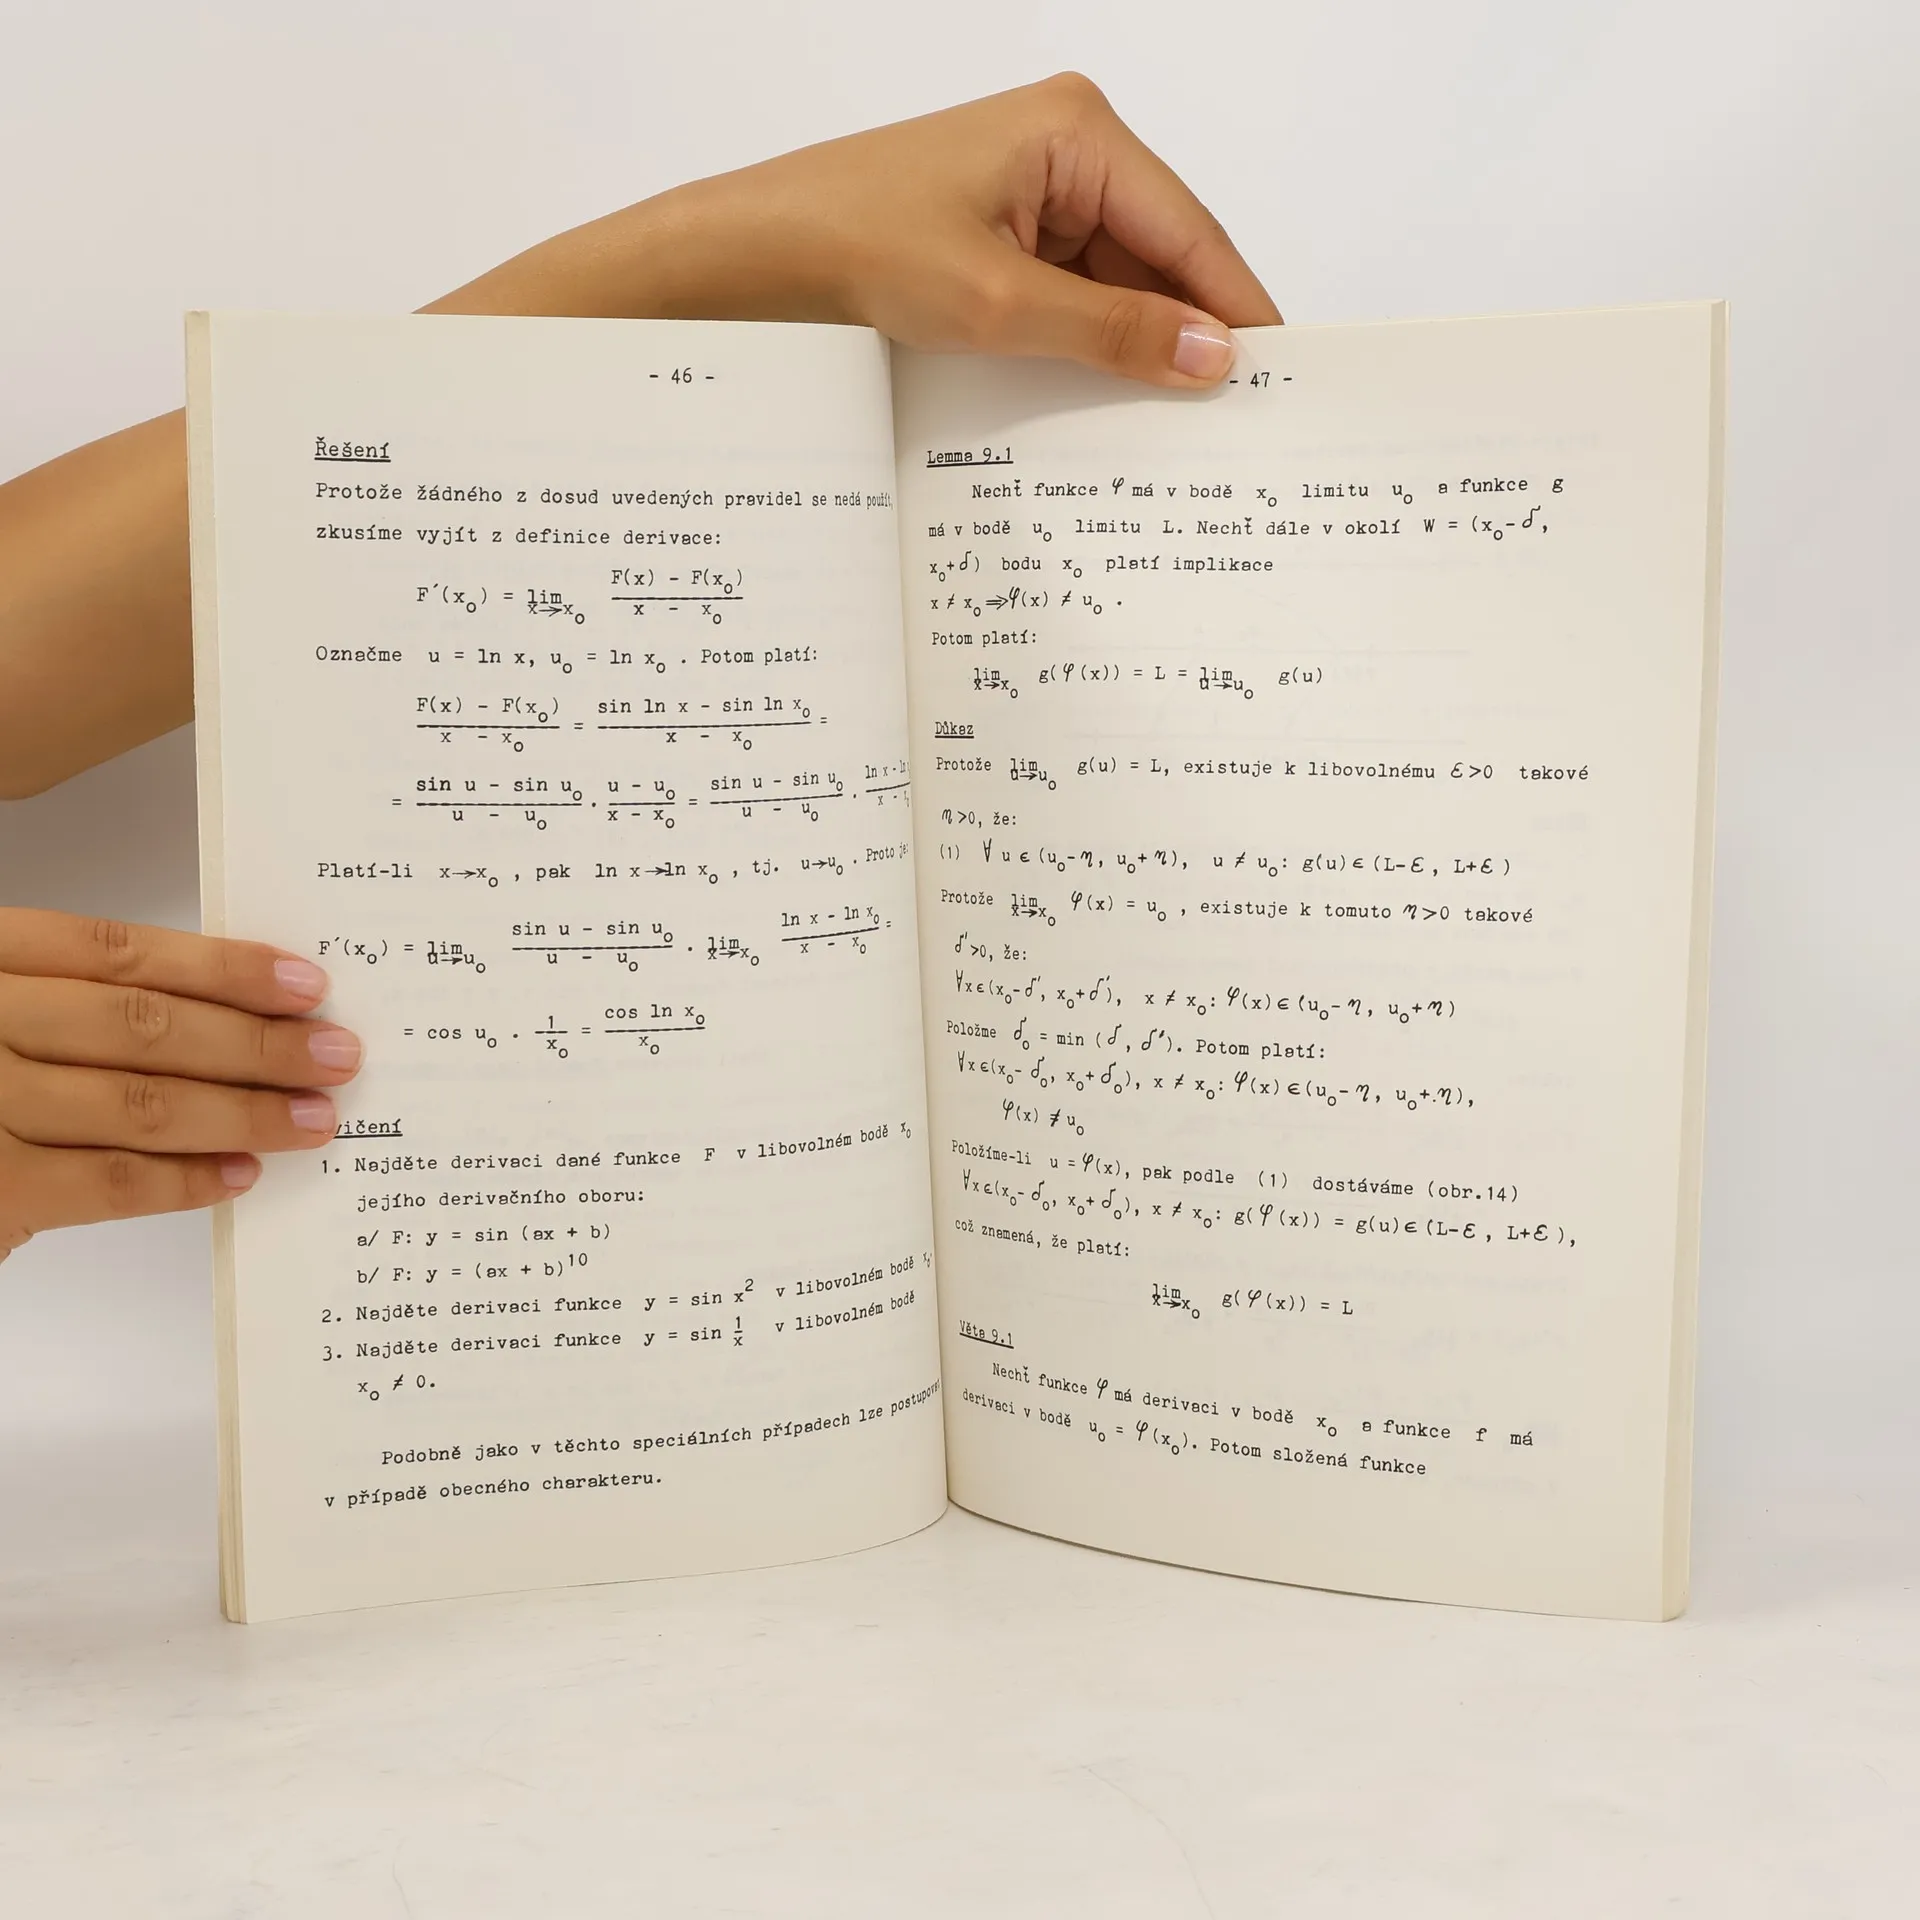 - 46 -
Řešení
Protože žádného z dosud uvedených pravidel se nedá použít,
zkusíme vyjít z definice derivace:
F´(x₀) = lim x→x₀ (F(x) - F(x₀)) / (x - x₀)
Označme u = ln x, u₀ = ln x₀ . Potom platí:
(F(x) - F(x₀)) / (x - x₀) = (sin ln x - sin ln x₀) / (x - x₀) =
= (sin u - sin u₀) / (u - u₀) . (u - u₀) / (x - x₀) = (sin u - sin u₀) / (u - u₀) . (ln x - ln) / (x -
Platí-li x→x₀ , pak ln x→ln x₀ , tj. u→u₀ . Proto je:
F´(x₀) = lim u→u₀ (sin u - sin u₀) / (u - u₀) . lim x→x₀ (ln x - ln x₀) / (x - x₀) =
= cos u₀ . 1 / x₀ = cos ln x₀ / x₀
vičení
1. Najděte derivaci dané funkce F v libovolném bodě x₀
jejího derivačního oboru:
a/ F: y = sin (ax + b)
b/ F: y = (ax + b)¹⁰
2. Najděte derivaci funkce y = sin x² v libovolném bodě x₀.
3. Najděte derivaci funkce y = sin 1/x v libovolném bodě
x₀ ≠ 0.
Podobně jako v těchto speciálních případech lze postupovat
v případě obecného charakteru.
- 47 -
Lemma 9.1
Nechť funkce φ má v bodě x₀ limitu u₀ a funkce g
má v bodě u₀ limitu L. Nechť dále v okolí W = (x₀-δ,
x₀+δ) bodu x₀ platí implikace
x ≠ x₀ ⇒ φ(x) ≠ u₀ .
Potom platí:
lim x→x₀ g(φ(x)) = L = lim u→u₀ g(u)
Důkaz
Protože lim u→u₀ g(u) = L, existuje k libovolnému ε>0 takové
η>0, že:
(1) ∀ u ∈ (u₀-η, u₀+η), u ≠ u₀: g(u) ∈ (L-ε, L+ε)
Protože lim x→x₀ φ(x) = u₀ , existuje k tomuto η>0 takové
δ'>0, že:
∀x∈(x₀-δ', x₀+δ'), x ≠ x₀: φ(x) ∈ (u₀-η, u₀+η)
Položme δ₀ = min (δ, δ'). Potom platí:
∀x∈(x₀-δ₀, x₀+δ₀), x ≠ x₀: φ(x) ∈ (u₀-η, u₀+.η),
φ(x) ≠ u₀
Položíme-li u = φ(x), pak podle (1) dostáváme (obr.14)
∀x∈(x₀-δ₀, x₀+δ₀), x ≠ x₀: g(φ(x)) = g(u) ∈ (L-ε, L+ε),
což znamená, že platí:
lim x→x₀ g(φ(x)) = L
Věta 9.1
Nechť funkce φ má derivaci v bodě x₀ a funkce f má
derivaci v bodě u₀ = φ(x₀). Potom složená funkce